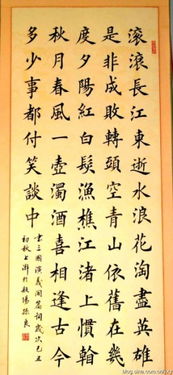 滾滾長江東逝水浪花淘盡英雄
是非成敗轉頭空青山依舊在幾
度夕陽紅白髮漁樵江渚上慣看
秋月春風一壺濁酒喜相逢古今
多少事都付笑談中
書三國演義開篇詞歲次己丑
初秋上澣於